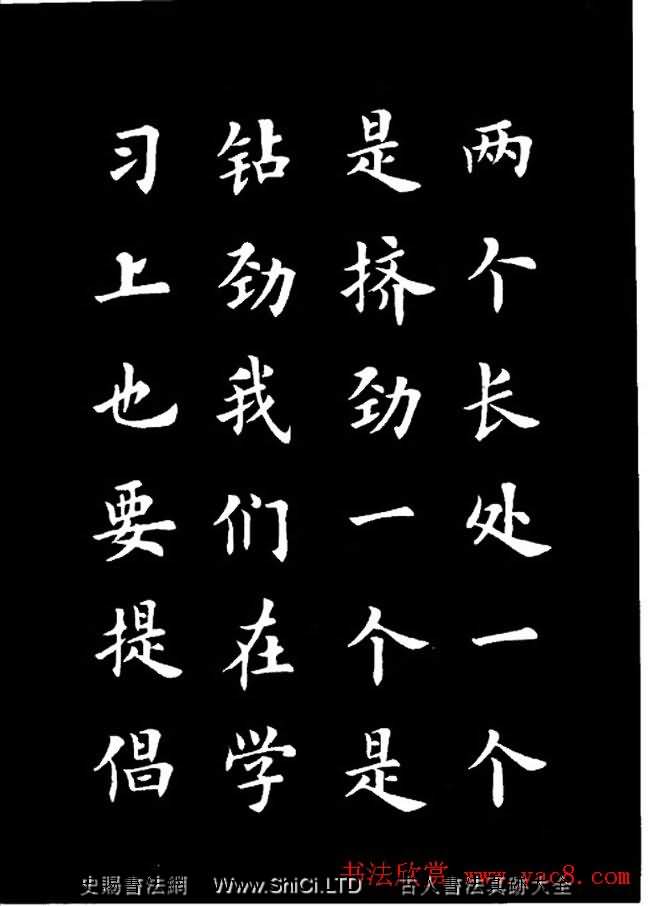 两个长处一个
是挤劲一个是
钻劲我们在学
习上也要提倡
书法欣赏 www.yac8.com
史賜書法網 Www.ShiCi.LTD 古人書法真跡大全